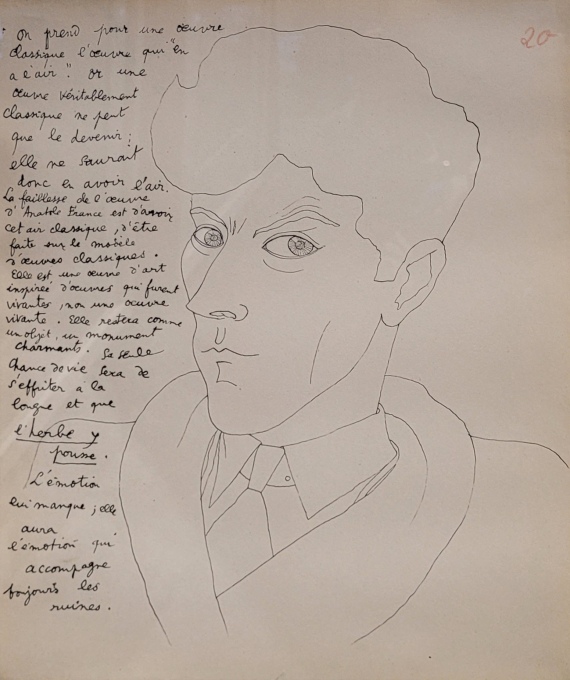 On prend pour une œuvre
classique l'œuvre qui "en
a l'air". Or une
œuvre véritablement
classique ne peut
que le devenir ;
elle ne saurait
donc en avoir l'air.
La faiblesse de l'œuvre
d'Anatole France est d'avoir
cet air classique, d'être
faite sur le modèle
d'œuvres classiques.
Elle est une œuvre d'art
inspirée d'œuvres qui furent
vivantes, non une œuvre
vivante. Elle restera comme
un objet, un monument
charmants. Sa seule
chance de vie sera de
s'effriter à la
longue et que
l'herbe y
pousse.
L'émotion
lui manque ; elle
aura
l'émotion qui
accompagne
toujours les
ruines.
20